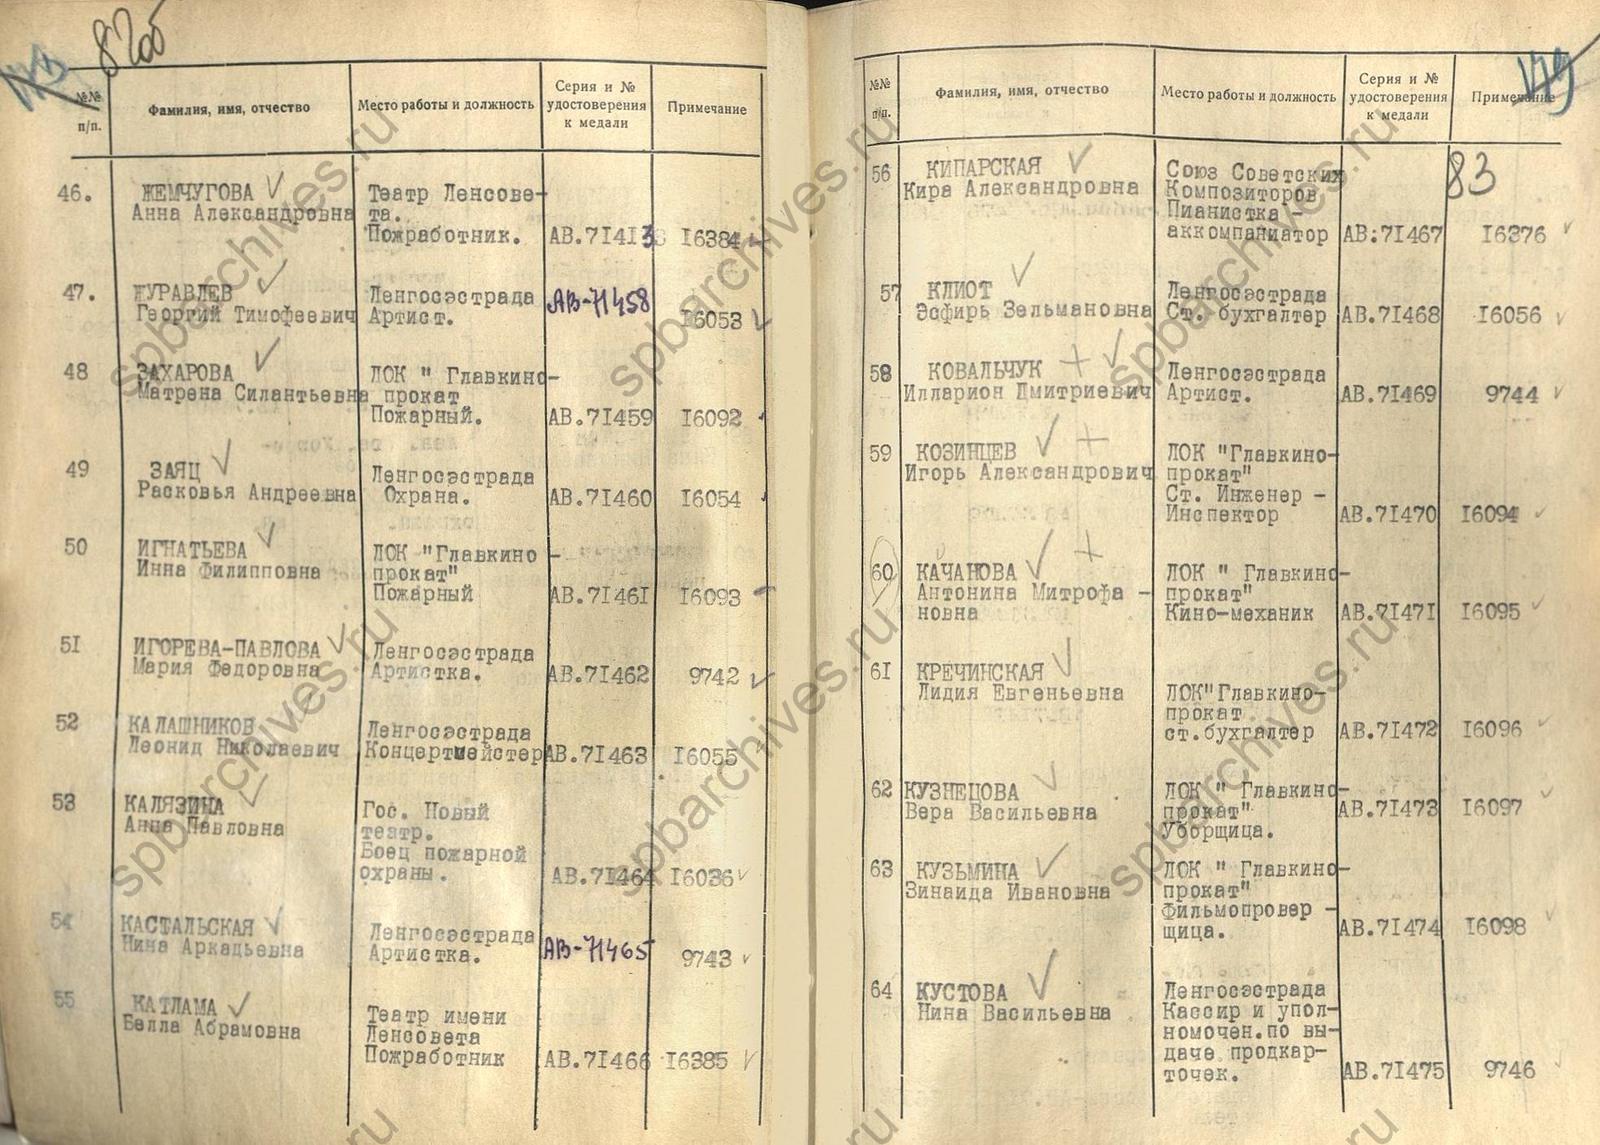 82об
№№ п/п.
Фамилия, имя, отчество
Место работы и должность
Серия и № удостоверения к медали
Примечание
46.
ЖЕМЧУГОВА
Анна Александровна
Театр Ленсове-
та.
Пожработник.
АВ.71413
16384
47.
ЖУРАВЛЕВ
Георгий Тимофеевич
Ленгосэстрада
Артист.
АВ-71458
16053
48
ЗАХАРОВА
Матрена Силантьевна
ЛОК " Главкино-
прокат
Пожарный.
АВ.71459
16092
49
ЗАЯЦ
Расковья Андреевна
Ленгосэстрада
Охрана.
АВ.71460
16054
50
ИГНАТЬЕВА
Инна Филипповна
ЛОК "Главкино -
прокат"
Пожарный
АВ.71461
16093
51
ИГОРЕВА-ПАВЛОВА
Мария Федоровна
Ленгосэстрада
Артистка.
АВ.71462
9742
52
КАЛАШНИКОВ
Леонид Николаевич
Ленгосэстрада
Концертмейстер
АВ.71463
16055
53
КАЛЯЗИНА
Анна Павловна
Гос. Новый
театр.
Боец пожарной
охраны.
АВ.71464
16036
54
КАСТАЛЬСКАЯ
Нина Аркадьевна
Ленгосэстрада
Артистка.
АВ-71465
9743
55
КАТЛАМА
Белла Абрамовна
Театр имени
Ленсовета
Пожработник
АВ.71466
16385
№№ п/п.
Фамилия, имя, отчество
Место работы и должность
Серия и № удостоверения к медали
Примечание
83
56
КИПАРСКАЯ
Кира Александровна
Союз Советских
Композиторов
Пианистка -
аккомпаниатор
АВ:71467
16376
57
КЛИОТ
Эсфирь Зельмановна
Ленгосэстрада
Ст. бухгалтер
АВ.71468
16056
58
КОВАЛЬЧУК
Илларион Дмитриевич
Ленгосэстрада
Артист.
АВ.71469
9744
59
КОЗИНЦЕВ
Игорь Александрович
ЛОК "Главкино-
прокат"
Ст. Инженер -
Инспектор
АВ.71470
16094
60
КАЧАНОВА
Антонина Митрофа -
новна
ЛОК " Главкино-
прокат"
Кино-механик
АВ.71471
16095
61
КРЕЧИНСКАЯ
Лидия Евгеньевна
ЛОК"Главкино-
прокат
ст.бухгалтер
АВ.71472
16096
62
КУЗНЕЦОВА
Вера Васильевна
ЛОК " Главкино-
прокат"
Уборщица.
АВ.71473
16097
63
КУЗЬМИНА
Зинаида Ивановна
ЛОК " Главкино-
прокат"
Фильмопровер -
щица.
АВ.71474
16098
64
КУСТОВА
Нина Васильевна
Ленгосэстрада
Кассир и упол-
номочен.по вы-
даче продкар-
точек.
АВ.71475
9746
spbarchives.ru
spbarchives.ru
spbarchives.ru
spbarchives.ru
spbarchives.ru
spbarchives.ru